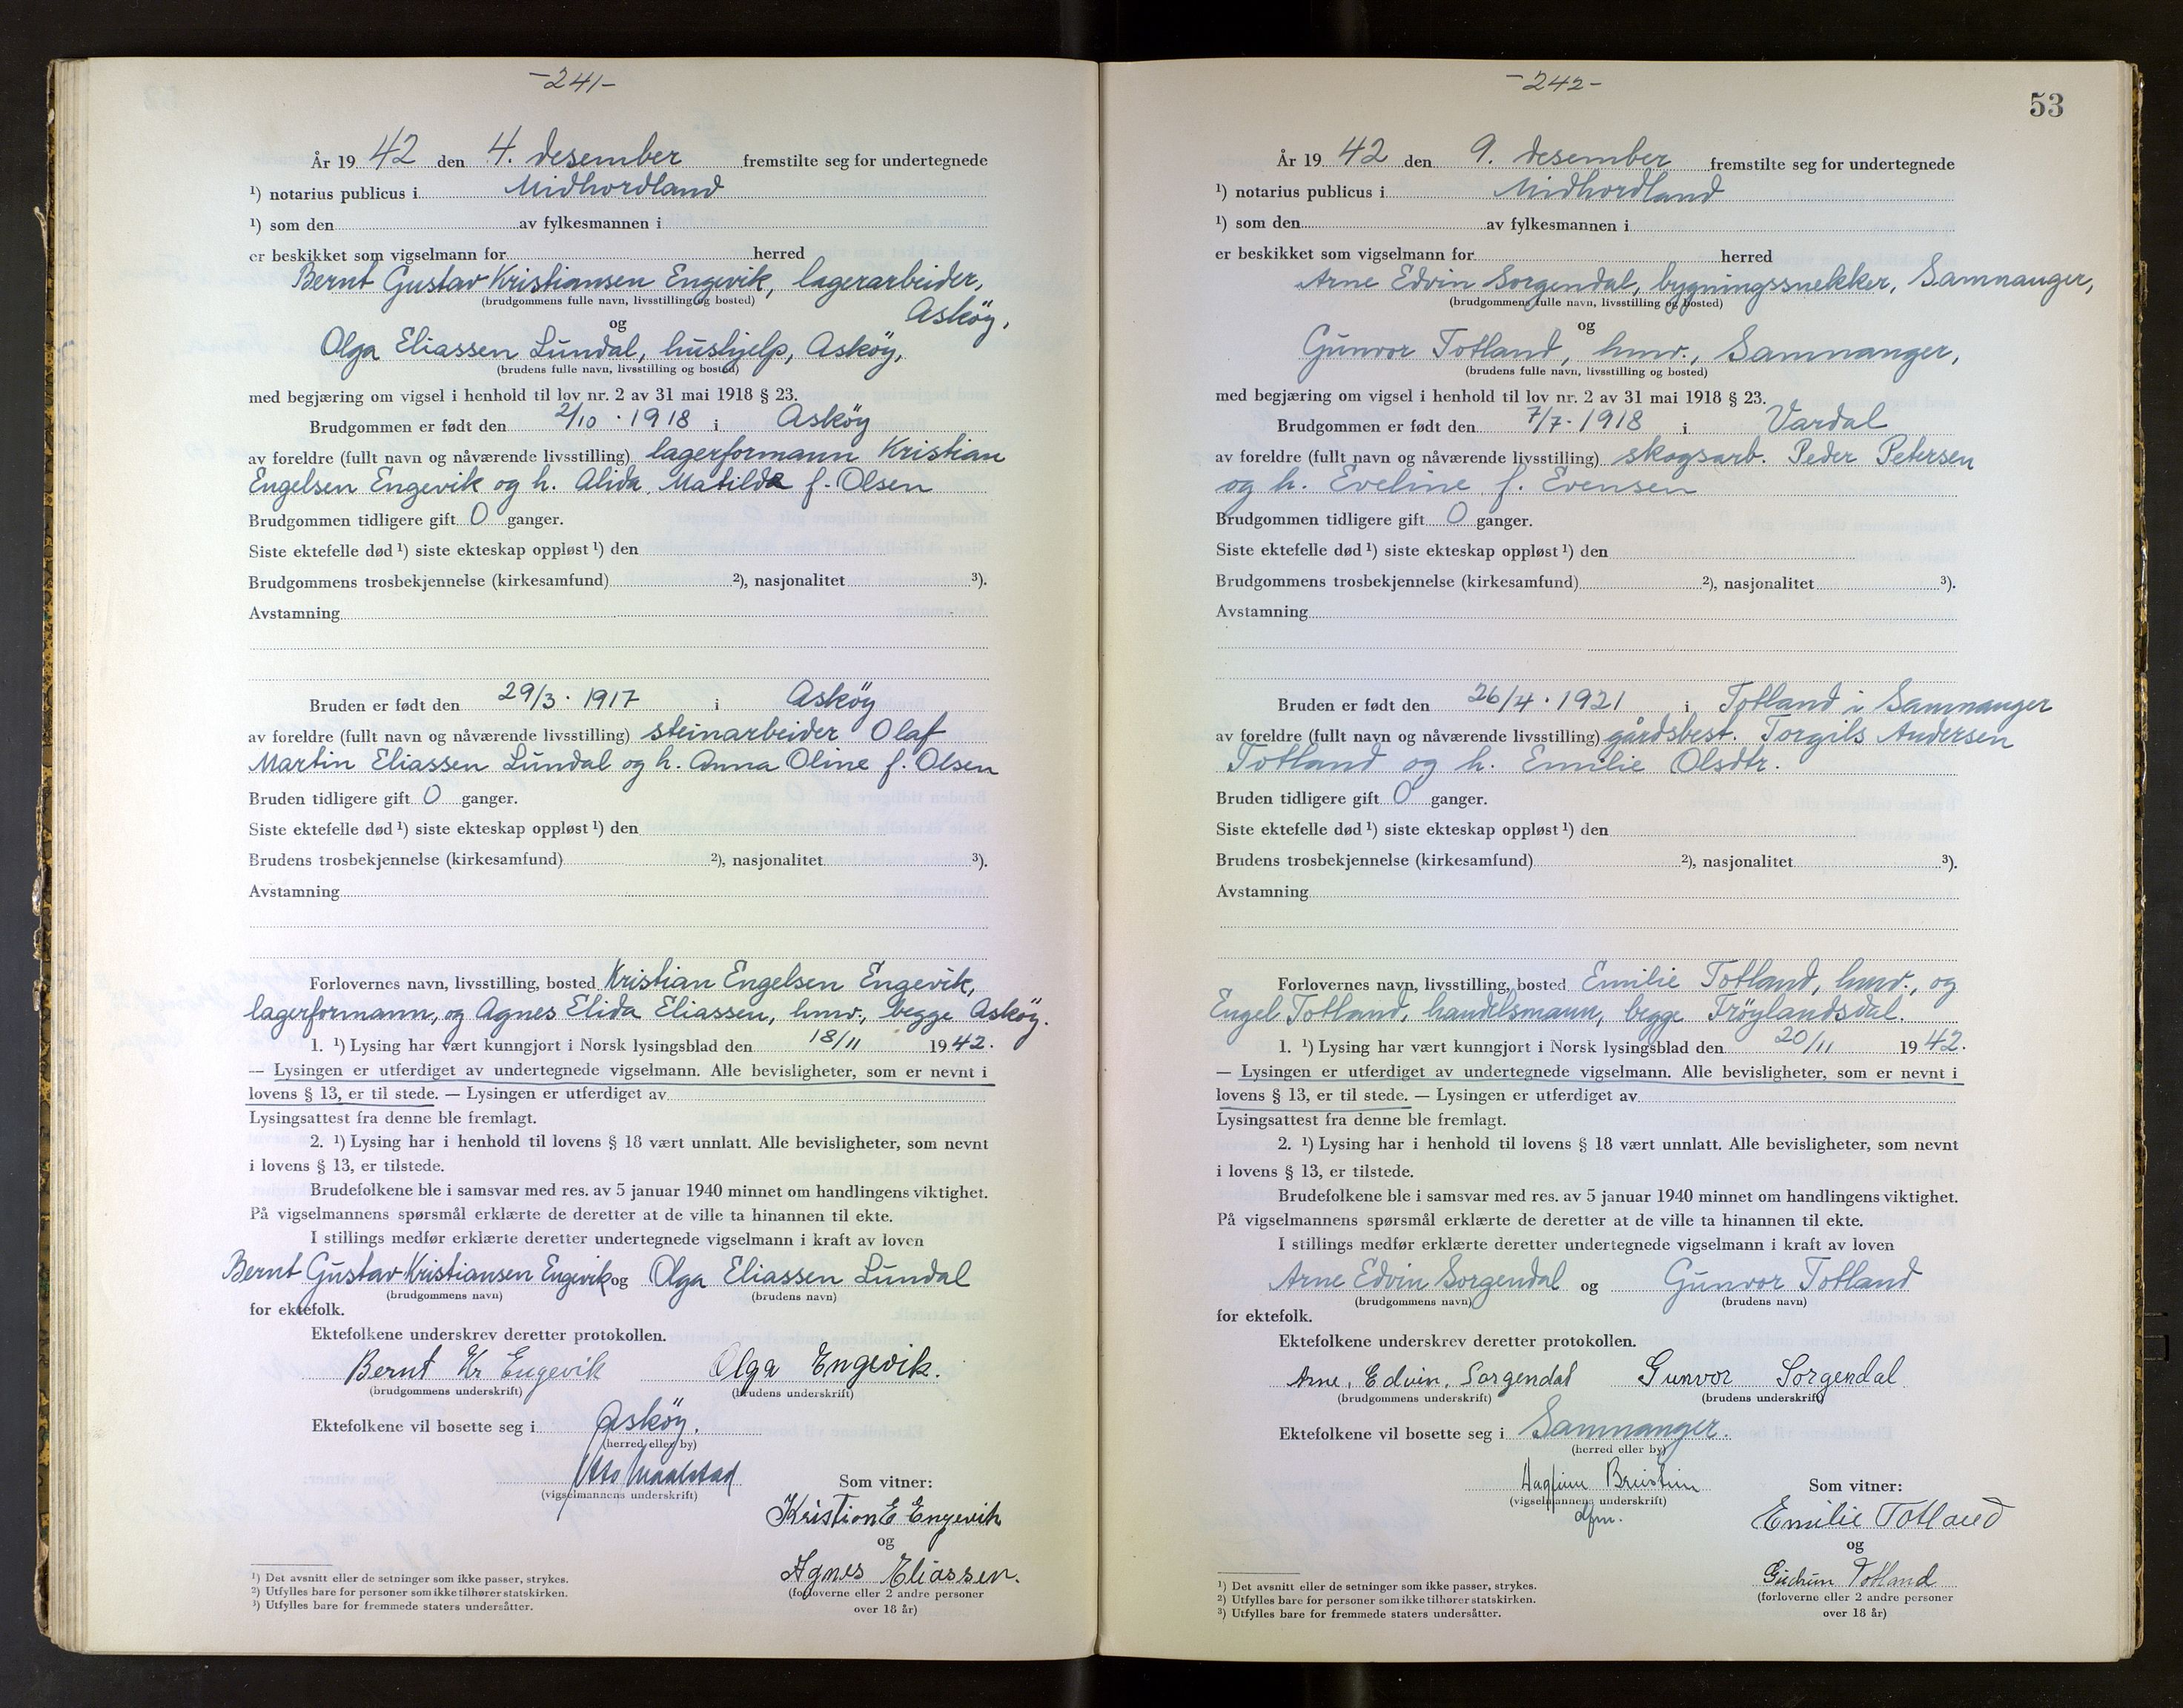 -241-
År 1942 den 4. desember fremstilte seg for undertegnede
¹) notarius publicus i Midhordland
¹) som den av fylkesmannen i
er beskikket som vigselmann for herred
Bernt Gustav Kristiansen Engevik, lagerarbeider,
(brudgommens fulle navn, livsstilling og bosted)
Asköy,
og
Olga Eliassen Lundal, hushjelp, Asköy,
(brudens fulle navn, livsstilling og bosted)
med begjæring om vigsel i henhold til lov nr. 2 av 31 mai 1918 § 23.
Brudgommen er født den 2/10 . 1918 i Asköy
av foreldre (fullt navn og nåværende livsstilling) lagerformann Kristian
Engelsen Engevik og h. Alida Matilde f. Olsen
Brudgommen tidligere gift 0 ganger.
Siste ektefelle død ¹) siste ekteskap oppløst ¹) den
Brudgommens trosbekjennelse (kirkesamfund) ²), nasjonalitet ³).
Avstamning
Bruden er født den 29/3 . 1917 i Asköy
av foreldre (fullt navn og nåværende livsstilling) steinarbeider Olaf
Martin Eliassen Lundal og h. Anna Oline f. Olsen
Bruden tidligere gift 0 ganger.
Siste ektefelle død ¹) siste ekteskap oppløst ¹) den
Brudens trosbekjennelse (kirkesamfund) ²), nasjonalitet ³).
Avstamning
Forlovernes navn, livsstilling, bosted Kristian Engelsen Engevik,
lagerformann, og Agnes Elida Eliassen, hmv., begge Asköy.
1. ¹) Lysing har vært kunngjort i Norsk lysingsblad den 18/11 1942.
— Lysingen er utferdiget av undertegnede vigselmann. Alle bevisligheter, som er nevnt i
lovens § 13, er til stede. — Lysingen er utferdiget av
Lysingsattest fra denne ble fremlagt.
2. ¹) Lysing har i henhold til lovens § 18 vært unnlatt. Alle bevisligheter, som nevnt
i lovens § 13, er tilstede.
Brudefolkene ble i samsvar med res. av 5 januar 1940 minnet om handlingens viktighet.
På vigselmannens spørsmål erklærte de deretter at de ville ta hinannen til ekte.
I stillings medfør erklærte deretter undertegnede vigselmann i kraft av loven
Bernt Gustav Kristiansen Engevik og Olga Eliassen Lundal
(brudgommens navn) (brudens navn)
for ektefolk.
Ektefolkene underskrev deretter protokollen.
Bernt Kr Engevik Olga Engevik.
(brudgommens underskrift) (brudens underskrift)
Ektefolkene vil bosette seg i Asköy.
(herred eller by)
Otto
(vigselmannens underskrift)
Som vitner:
Kristian E Engevik
og
Agnes Eliassen.
(forloverne eller 2 andre personer
over 18 år)
¹) Det avsnitt eller de setninger som ikke passer, strykes.
²) Utfylles bare for personer som ikke tilhører statskirken.
³) Utfylles bare for fremmede staters undersåtter.
-242-
53
År 1942 den 9. desember fremstilte seg for undertegnede
¹) notarius publicus i Midhordland
¹) som den av fylkesmannen i
er beskikket som vigselmann for herred
Arne Edvin Sorgendal, bygningssnekker, Samnanger,
(brudgommens fulle navn, livsstilling og bosted)
og
Gunvor Totland, hmv., Samnanger,
(brudens fulle navn, livsstilling og bosted)
med begjæring om vigsel i henhold til lov nr. 2 av 31 mai 1918 § 23.
Brudgommen er født den 7/7 . 1918 i Vardal
av foreldre (fullt navn og nåværende livsstilling) skogsarb. Peder Petersen
og h. Eveline f. Evensen
Brudgommen tidligere gift 0 ganger.
Siste ektefelle død ¹) siste ekteskap oppløst ¹) den
Brudgommens trosbekjennelse (kirkesamfund) ²), nasjonalitet ³).
Avstamning
Bruden er født den 26/4 . 1921 i Totland i Samnanger
av foreldre (fullt navn og nåværende livsstilling) gårdsbest. Torgils Andersen
Totland og h. Emilie Olsdtr.
Bruden tidligere gift 0 ganger.
Siste ektefelle død ¹) siste ekteskap oppløst ¹) den
Brudens trosbekjennelse (kirkesamfund) ²), nasjonalitet ³).
Avstamning
Forlovernes navn, livsstilling, bosted Emilie Totland, hmv., og
Engel Totland, handelsmann, begge Fröylandsdal.
1. ¹) Lysing har vært kunngjort i Norsk lysingsblad den 20/11 1942.
— Lysingen er utferdiget av undertegnede vigselmann. Alle bevisligheter, som er nevnt i
lovens § 13, er til stede. — Lysingen er utferdiget av
Lysingsattest fra denne ble fremlagt.
2. ¹) Lysing har i henhold til lovens § 18 vært unnlatt. Alle bevisligheter, som nevnt
i lovens § 13, er tilstede.
Brudefolkene ble i samsvar med res. av 5 januar 1940 minnet om handlingens viktighet.
På vigselmannens spørsmål erklærte de deretter at de ville ta hinannen til ekte.
I stillings medfør erklærte deretter undertegnede vigselmann i kraft av loven
Arne Edvin Sorgendal og Gunvor Totland
(brudgommens navn) (brudens navn)
for ektefolk.
Ektefolkene underskrev deretter protokollen.
Arne. Edvin. Sorgendal Gunvor Sorgendal
(brudgommens underskrift) (brudens underskrift)
Ektefolkene vil bosette seg i Samnanger.
(herred eller by)
Hagfinn Breistein
(vigselmannens underskrift)
dfm.
Som vitner:
Emilie Totland
og
Gudrun Totland
(forloverne eller 2 andre personer
over 18 år)
¹) Det avsnitt eller de setninger som ikke passer, strykes.
²) Utfylles bare for personer som ikke tilhører statskirken.
³) Utfylles bare for fremmede staters undersåtter.